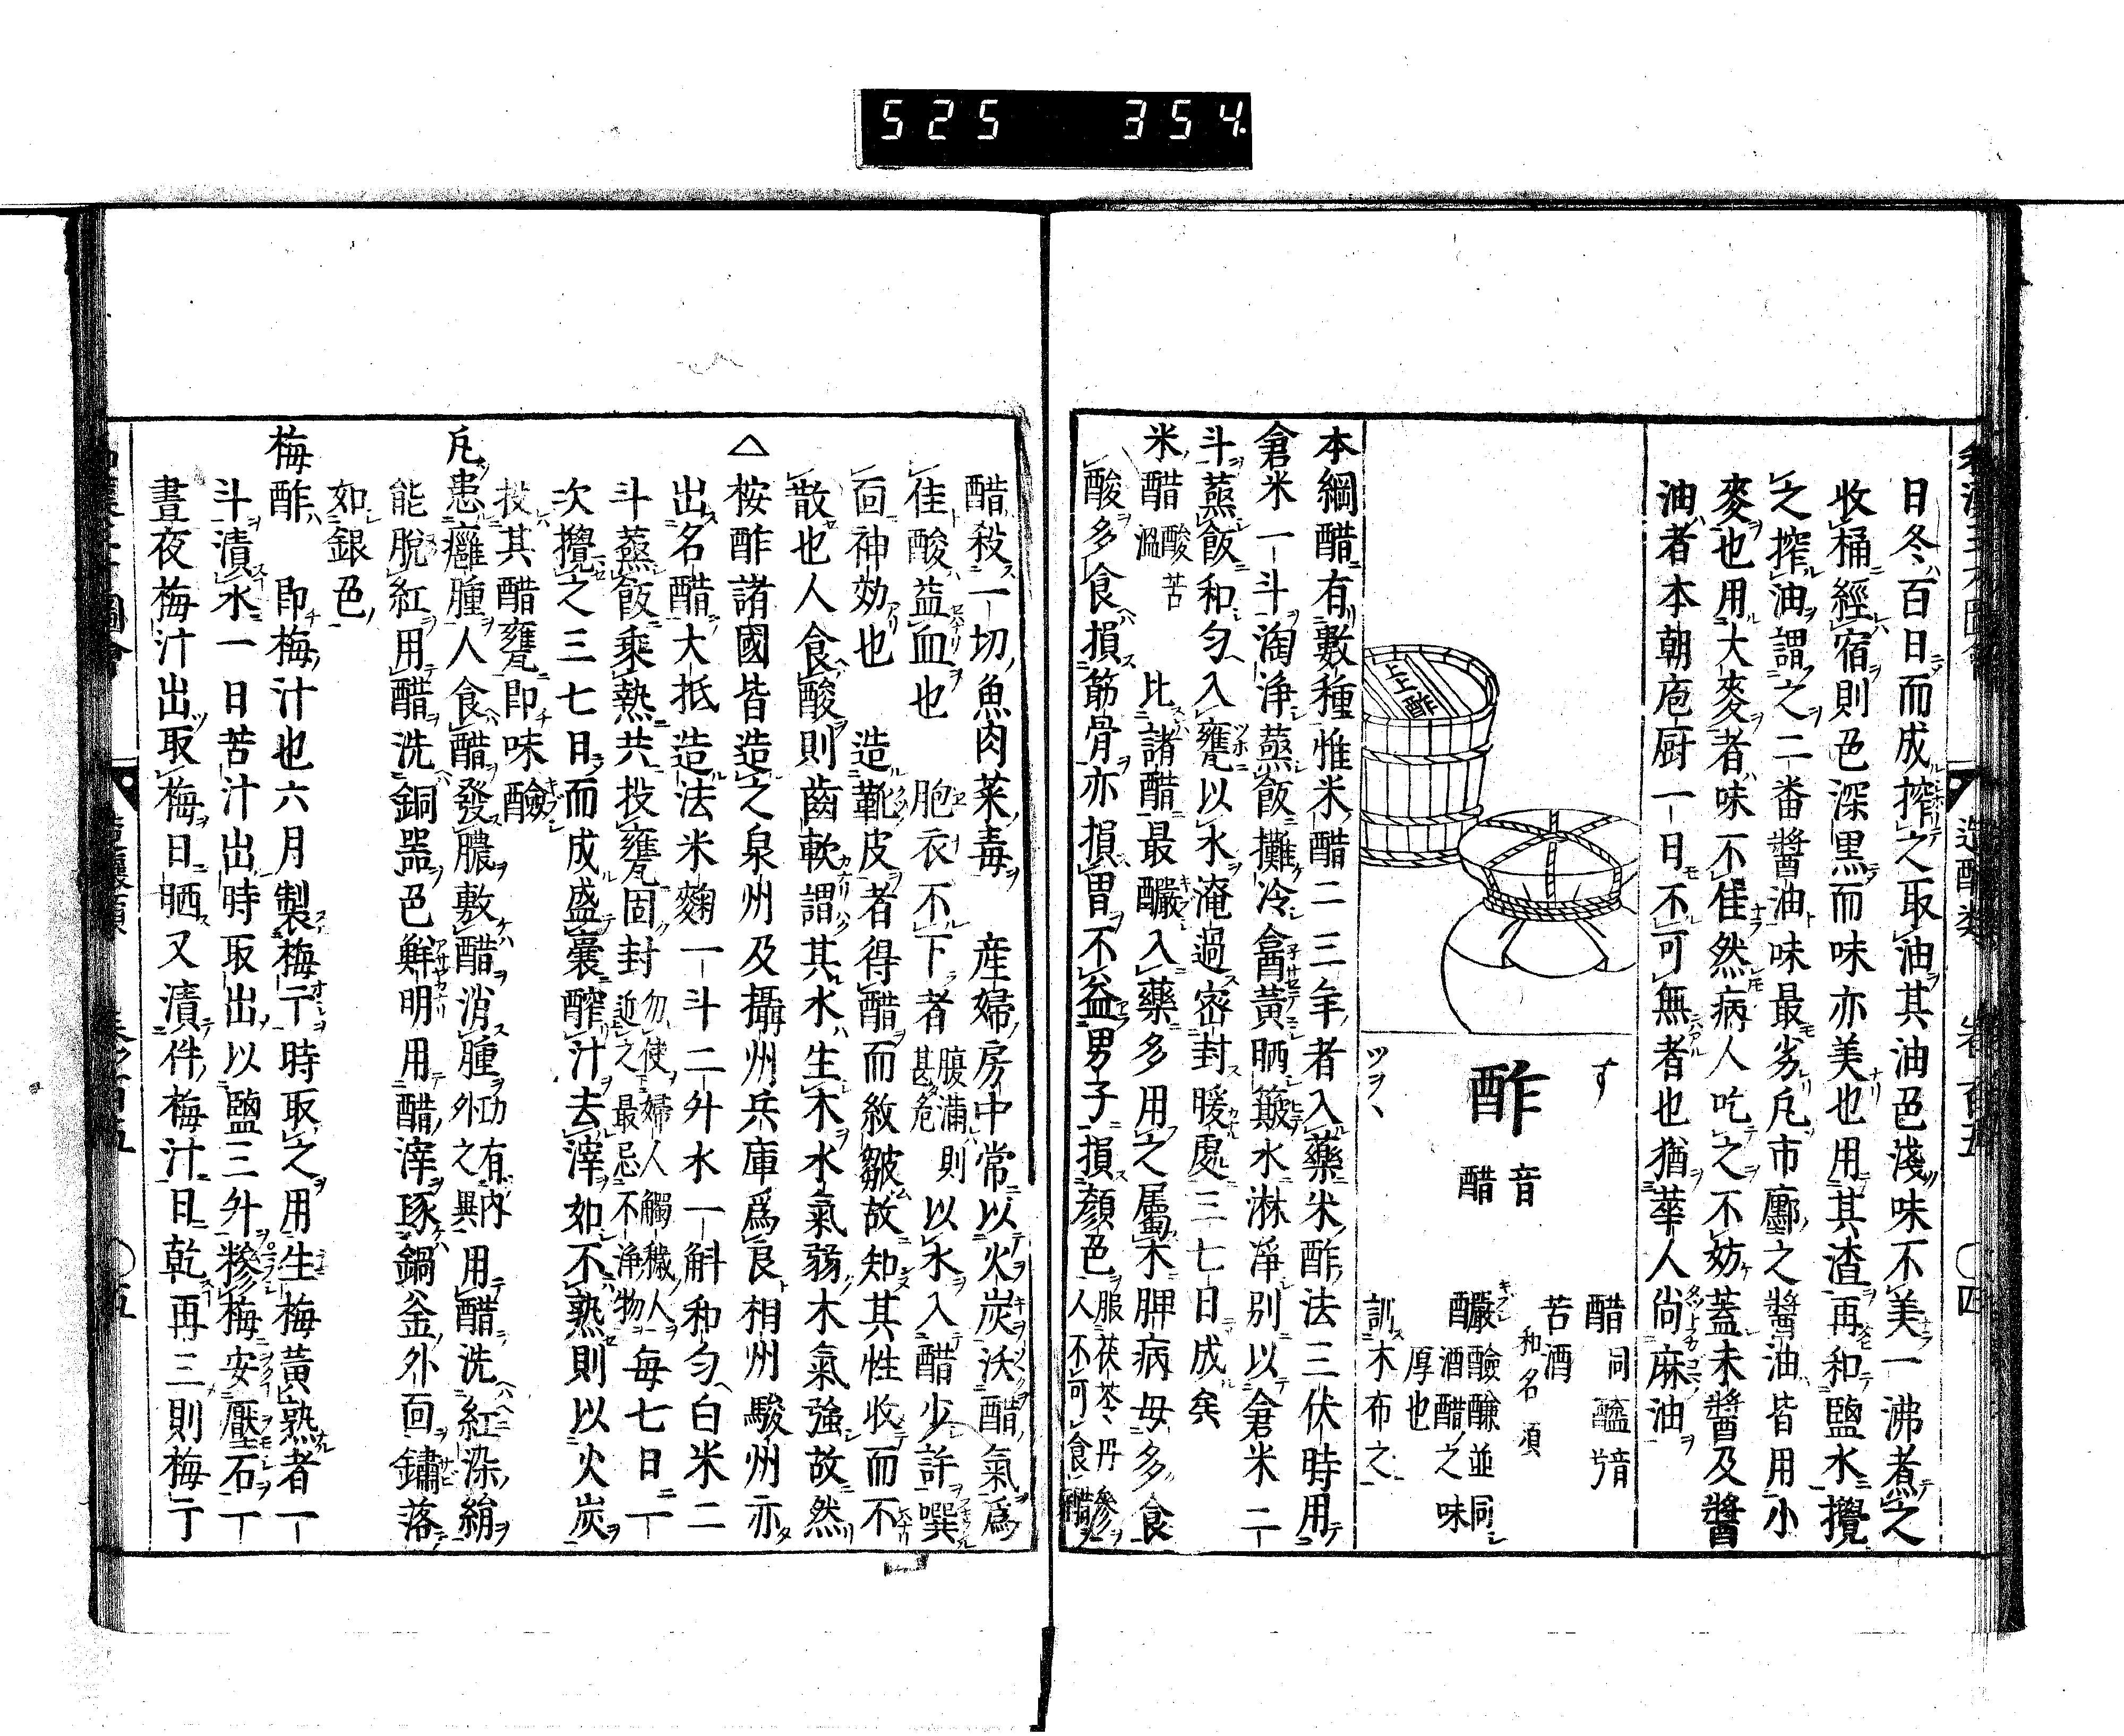 525 354
日冬百日而成搾之取油其油色淺味不美一沸煮之
收桶經宿則色深黒而味亦美也用其渣再和鹽水攪
之搾油謂之二番醬油味最劣凡市廛之醬油皆用小
麥也用大麥者味不佳然病人吃之不妨蓋未醬及醬
油者本朝庖厨一日不可無者也猶華人尚麻油
上上酢
す
酢
音醋
ツヲヽ
醋同
醯音
苦酒
和名須
釅醶𨣇並同
酢酒醋之味
厚也
訓木布之
本綱醋有數種惟米醋二三年者入藥米酢法三伏時用
倉米一斗淘浄蒸飯攤冷盦黃晒簸水淋淨别以倉米二
斗蒸飯和匀入甕以水淹過密封暖處三七日成矣
米醋酸苦温 比諸醋最釅入藥多用之屬木脾病毋多食
酸多食損筋骨亦損胃不益男子損顏色服茯苓丹參人不可食醋
醋殺一切魚肉菜毒 産婦房中常以火炭沃醋氣爲
佳酸益血也 胞衣不下者腹滿則甚危以水入醋少許噀
面神効也 造靴皮者得醋而紋皺故知其性收而不
散也人食酸則齒軟謂其水生木水氣弱木氣強故然
△按酢諸國皆造之泉州及攝州兵庫爲良相州駿州亦
出名醋大抵造法米麴一斗二升水一斛和匀白米二
斗蒸飯乘熱共投甕固封勿使婦人觸穢人近之最忌不浄物毎七日一
次攪之三七日而成盛嚢醡汁去滓如不熟則以火炭
投其醋甕即味醶
凡患癰腫人食醋發膿敷醋消腫功有内外之異用醋洗紅染絹
能脱紅用醋洗銅器色鮮明用醋滓琢鍋釜外面鏽落
如銀色
梅酢 即梅汁也六月製梅干時取之用生梅黃熟者一
斗漬水一日苦汁出時取出以鹽三升糝梅安壓石一
晝夜梅汁出取梅日晒又漬件梅汁日乾再三則梅干